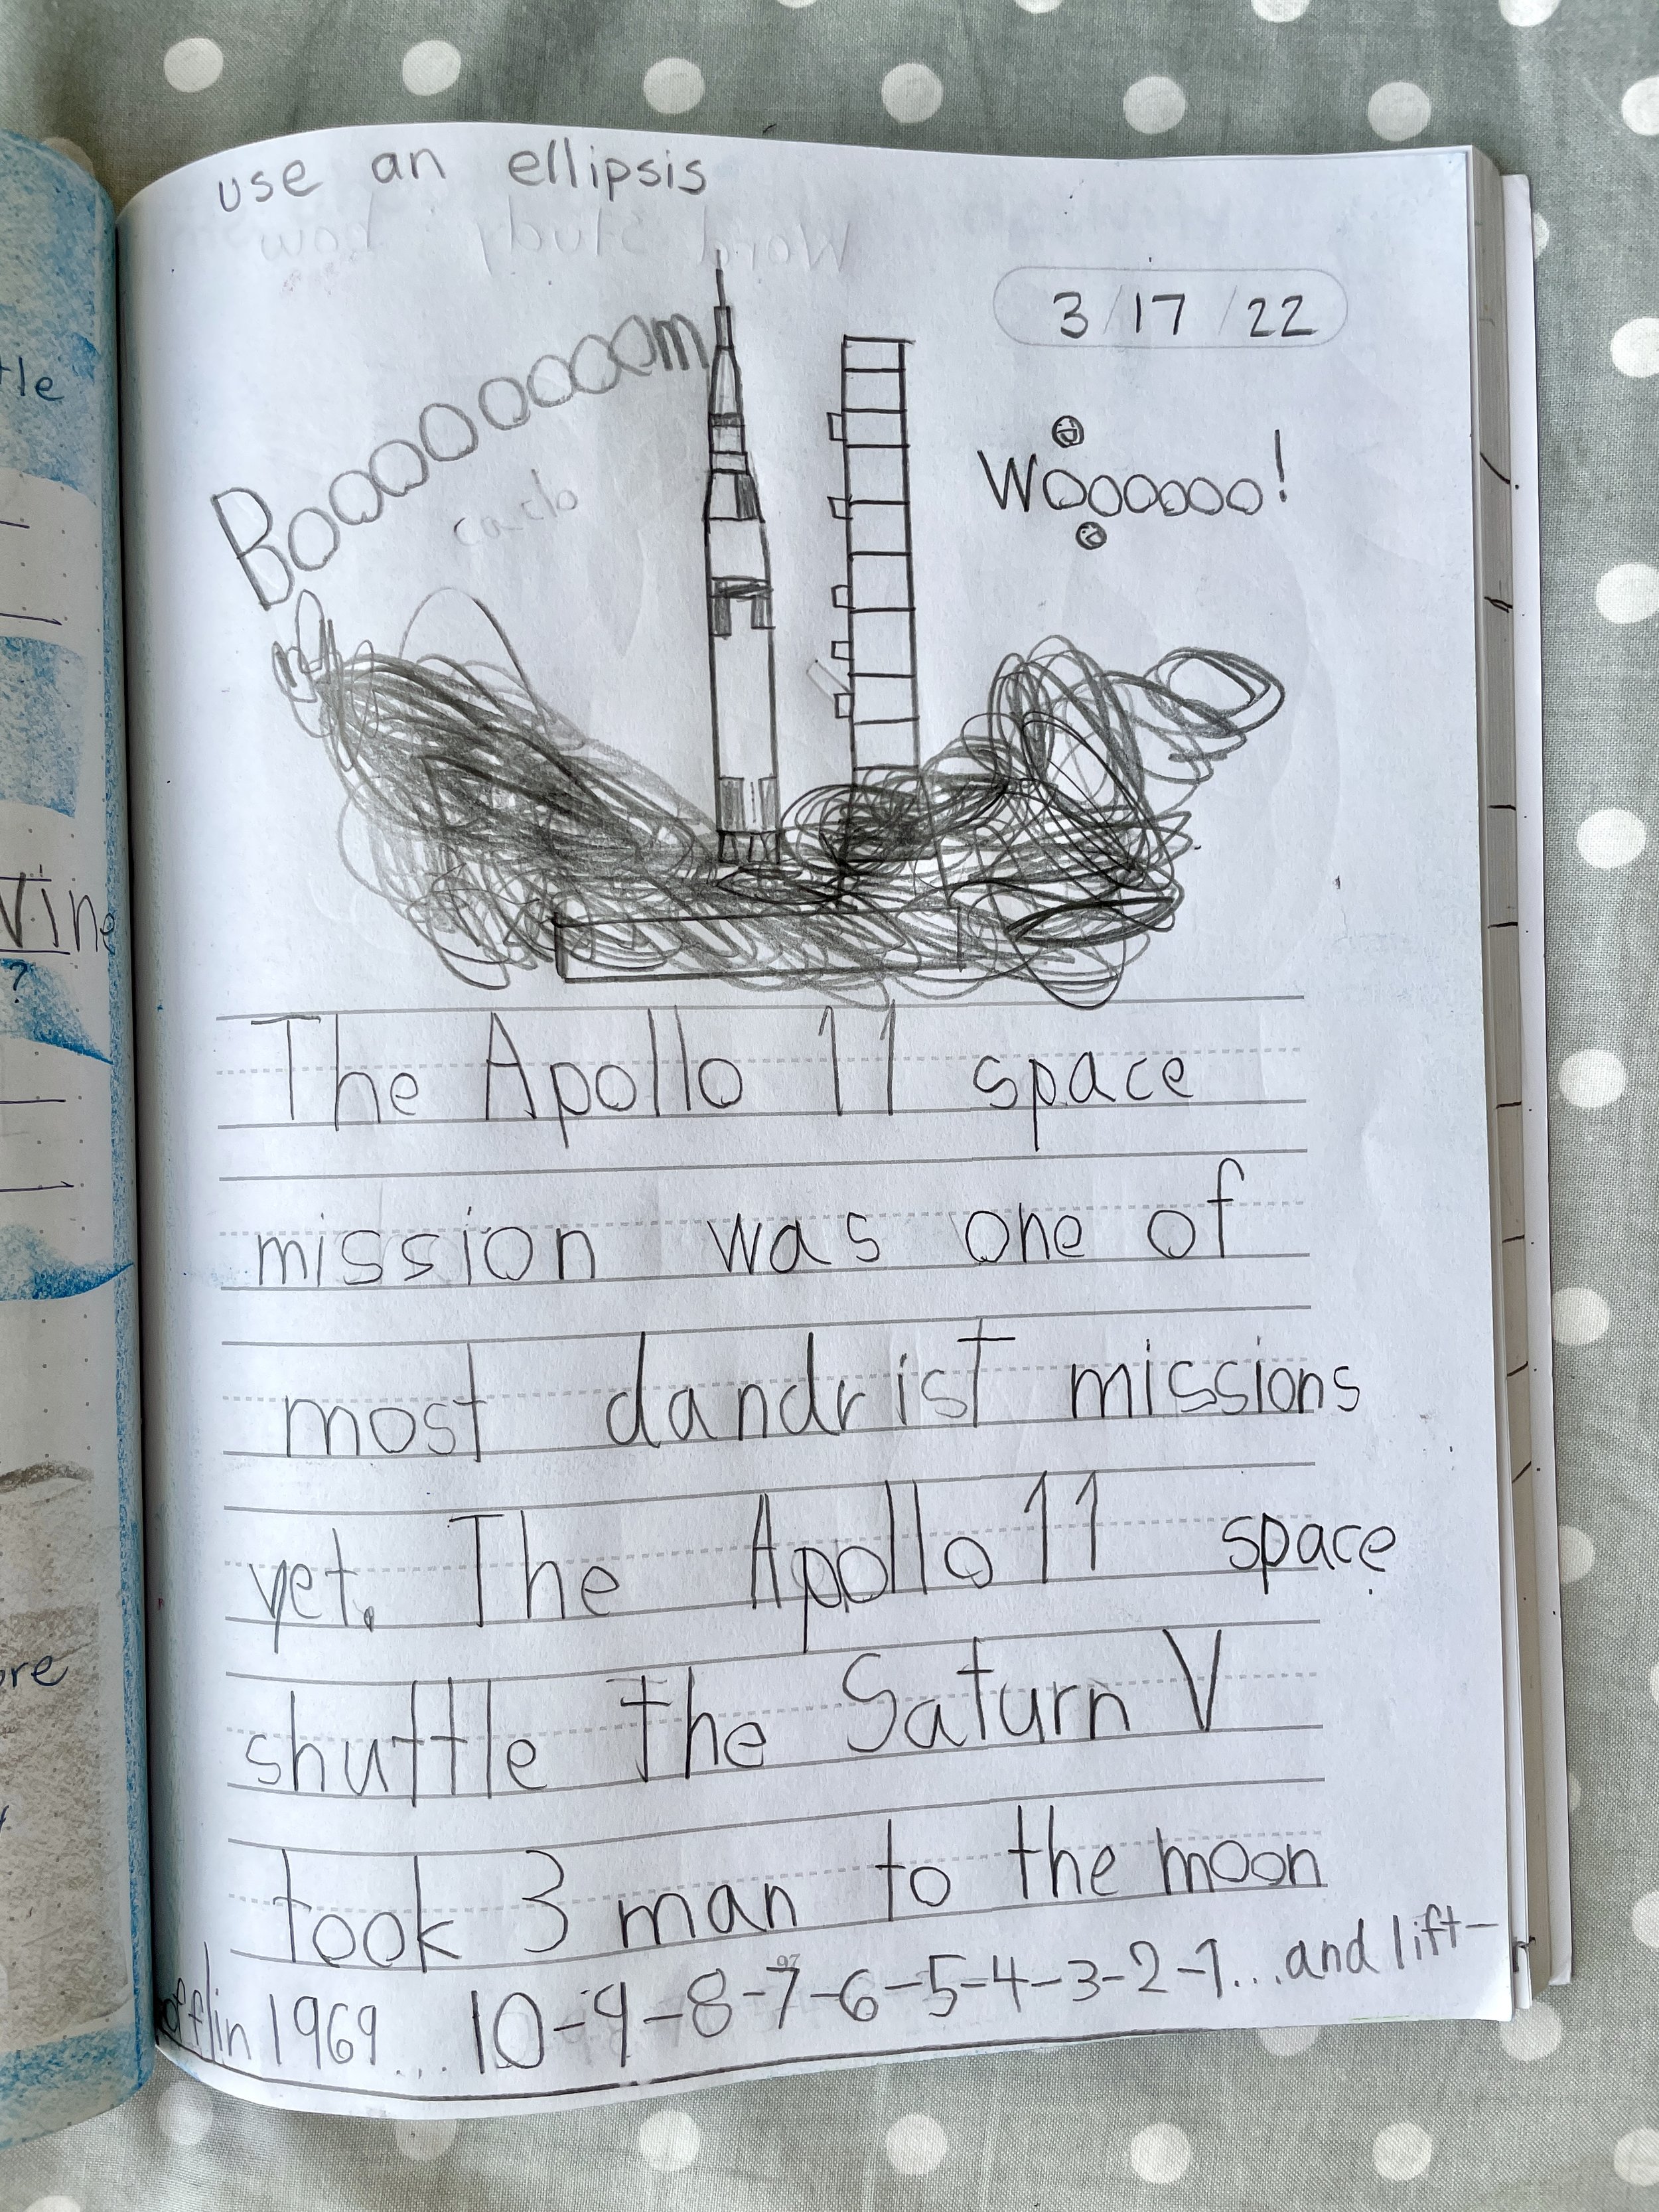 use an ellipsis
3/17/22
Boooooooooom
Woooooo!
The Apollo 11 space
mission was one of
most dandrist missions
yet. The Apollo 11 space
shuttle the Saturn V
took 3 man to the moon
in 1969... 10-9-8-7-6-5-4-3-2-1...and lift-
off